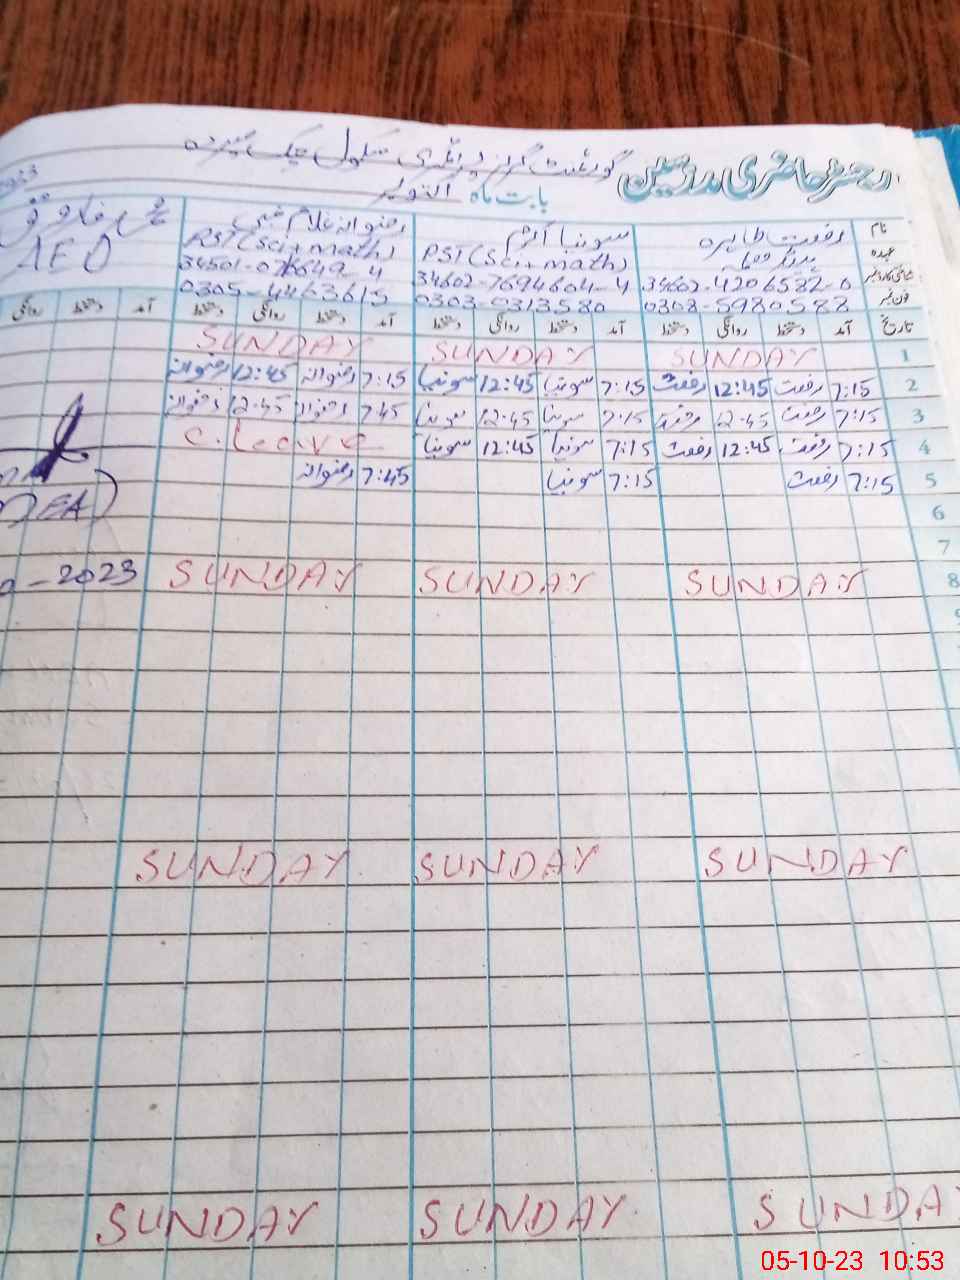 رجسٹر حاضری مدرسین گورنمنٹ گرلز پرائمری سکول چک
بابت ماہ اکتوبر
نام رفعت طاہرہ سونیا اکرم رضوانہ غلام نبی
عہدہ PST(Sci+math) PST(Sci+math) AEO
شناختی کارڈ نمبر 34602-4206582-0 34602-7694604-4 34501-076649-4
فون نمبر 0308-5980588 0303-0313580 0305-4463615
تاریخ آمد دستخط روانگی دستخط آمد دستخط روانگی دستخط آمد دستخط روانگی دستخط آمد دستخط روانگی
1 SUNDAY SUNDAY SUNDAY
2 7:15 رفعت 12:45 رفعت 7:15 سونیا 12:45 سونیا 7:15 رضوانہ 12:45 رضوانہ
3 7:15 رفعت 12:45 رفعت 7:15 سونیا 12:45 سونیا 7:45 رضوانہ 12:45 رضوانہ
4 7:15 رفعت 12:45 رفعت 7:15 سونیا 12:45 سونیا C.Leave
5 7:15 رفعت 7:15 سونیا 7:45 رضوانہ
6
7
8 SUNDAY SUNDAY SUNDAY
-2023
SUNDAY SUNDAY SUNDAY
SUNDAY SUNDAY SUNDA
05-10-23 10:53